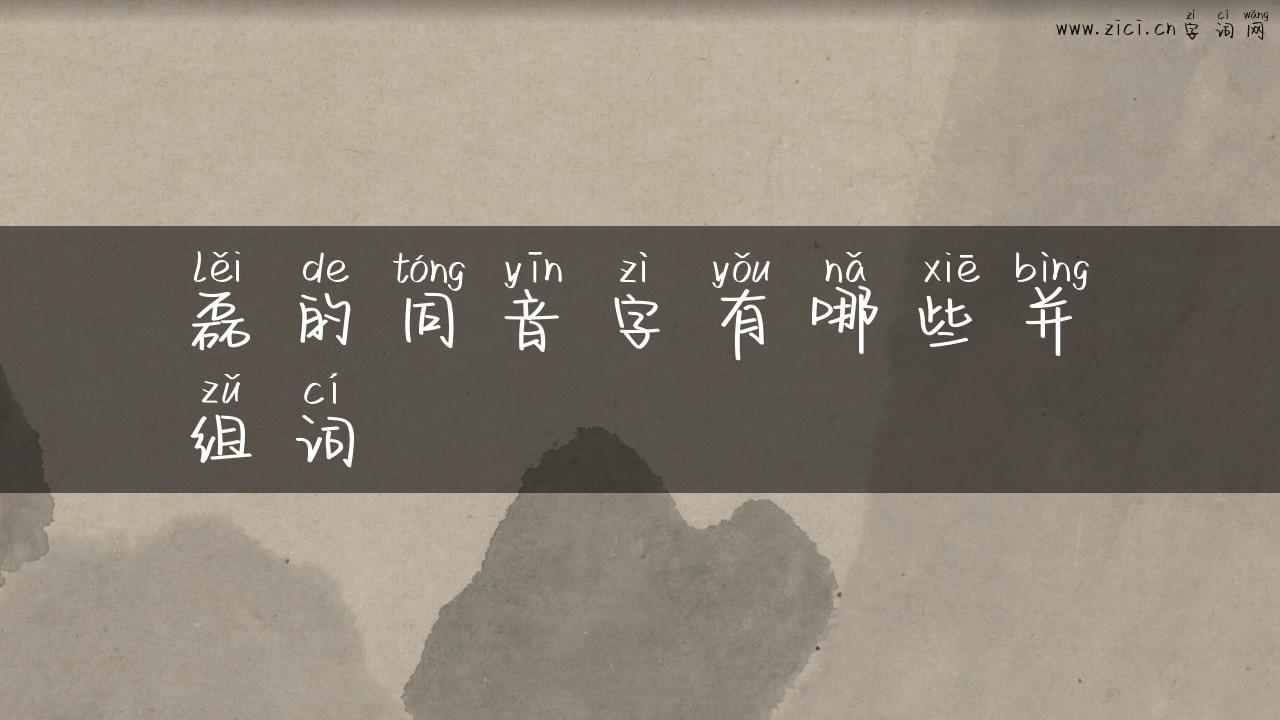 zì cí wǎng
www.zici.cn 字词网
lěi de tóng yīn zì yǒu nǎ xiē bìng
磊的同音字有哪些并
zǔ cí
组词